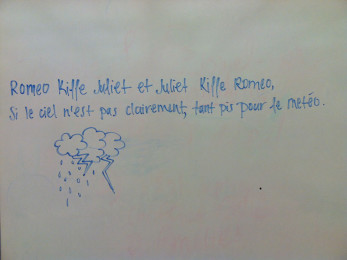 Romeo Kiffe Juliet et Juliet Kiffe Romeo,
Si le ciel n'est pas clairement, tant pis pour la metéo.